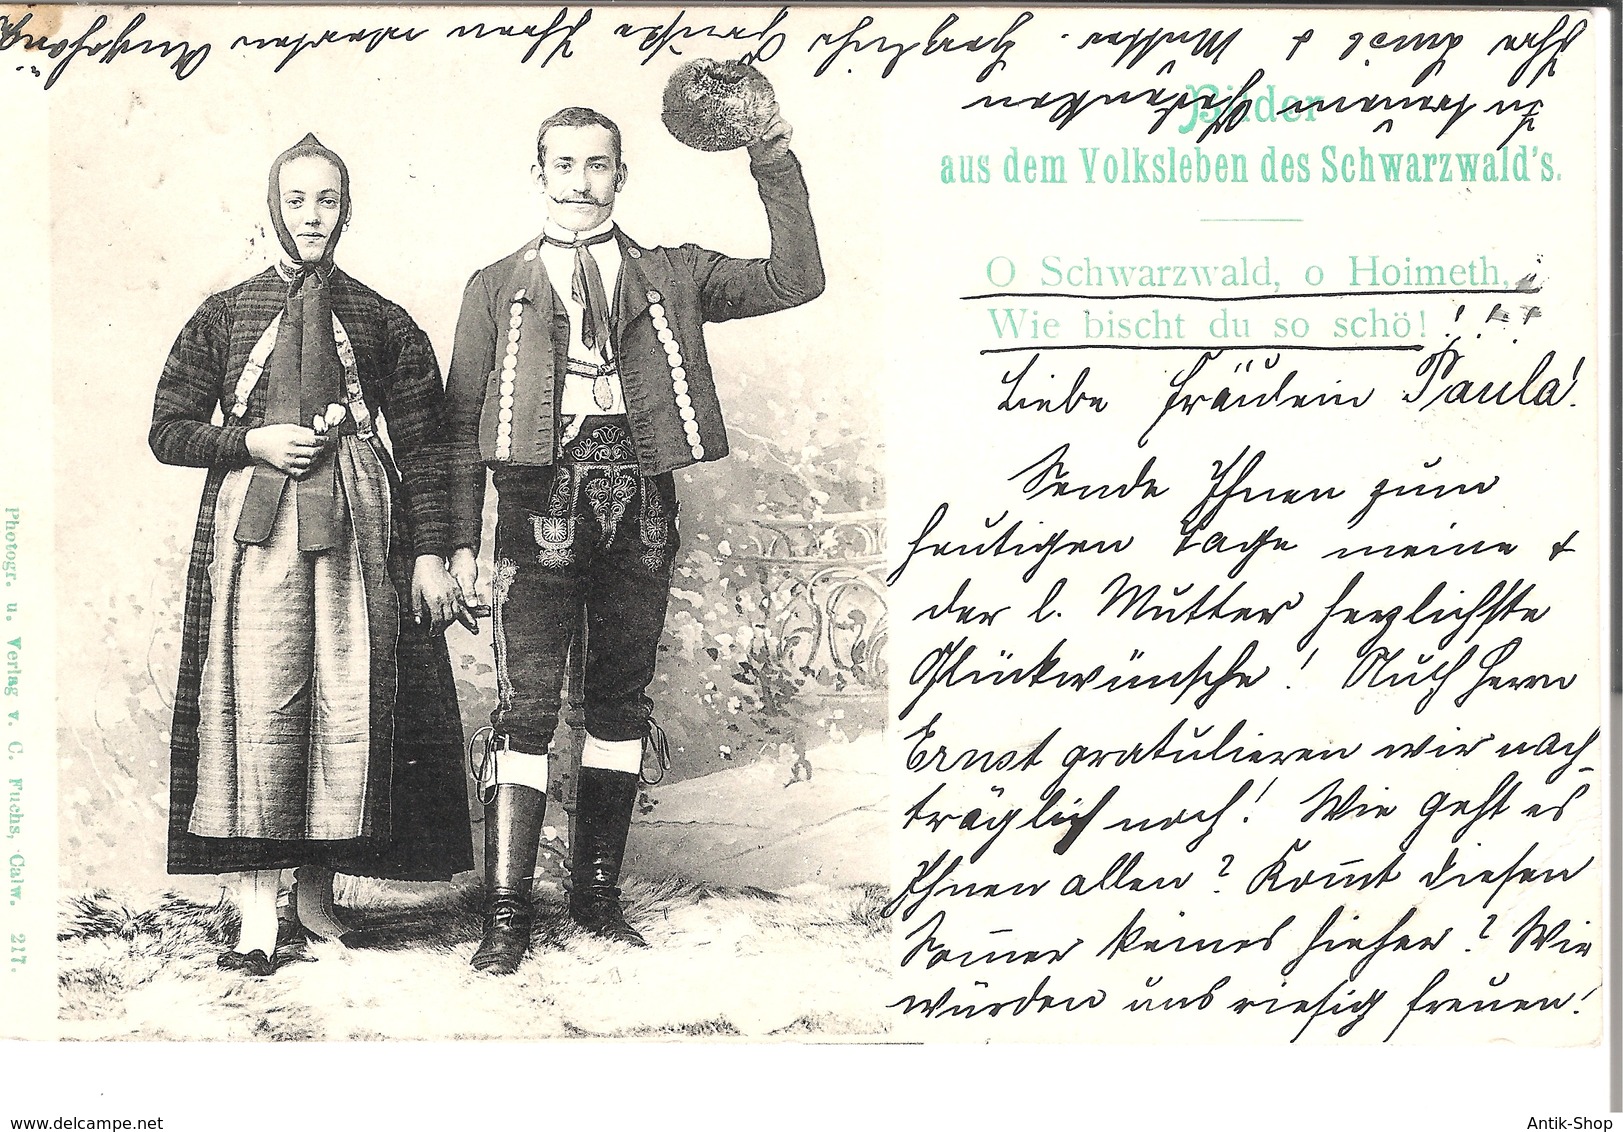 Bilder
aus dem Volksleben des Schwarzwald's.
O Schwarzwald, o Hoimeth,
Wie bischt du so schö! ! ! !
Liebe Fräulein Paula!
Sende Ihnen zum
heutigen Tage meine &
der l. Mutter herzlichste
Glückwünsche! Auch Herrn
Ernst gratulieren wir nach-
träglich noch! Wie geht es
Ihnen allen? Kom̅t diesen
Som̅er keines hieher? Wir
würden uns riesig freuen!
In treuem Gedenken
Ihre & Mutter. Herzliche Grüße Ihren werten Angehörig.
Photogr. u. Verlag v. C. Fuchs, Calw. 217.
www.delcampe.net
Antik-Shop